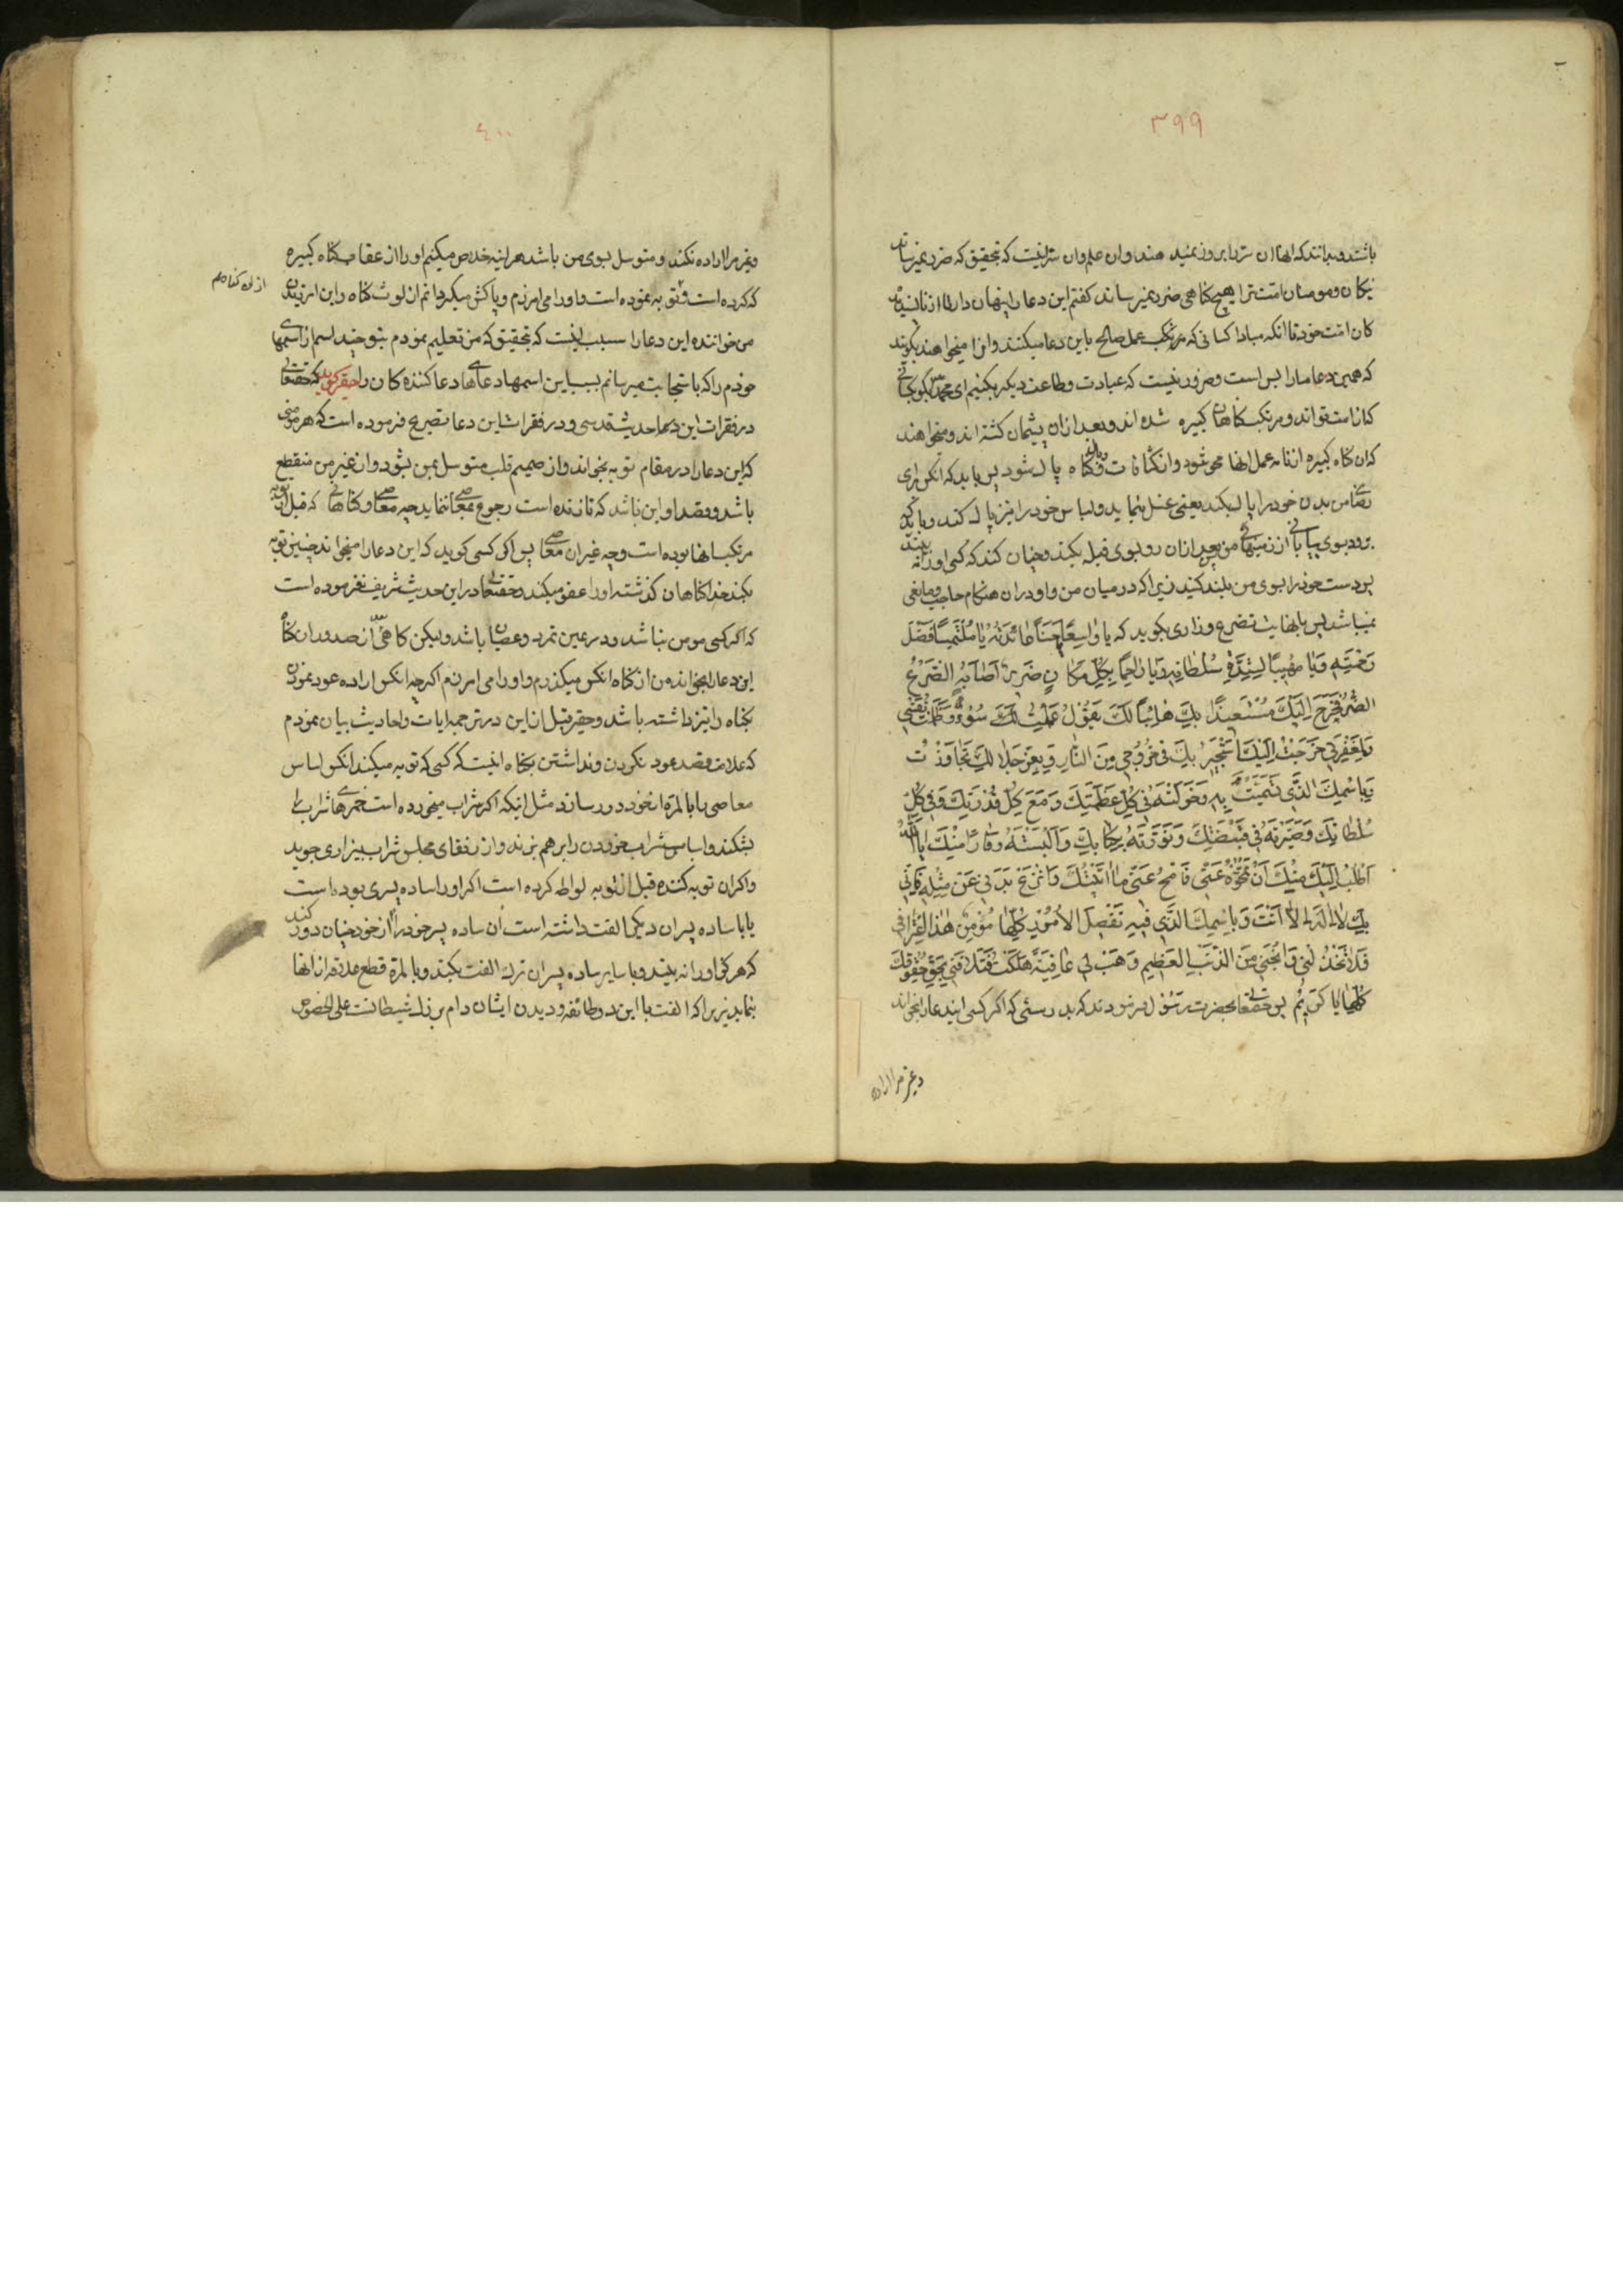 ٣٩٩
باشند و بدانند که انها ان سر را بروز نمیدهند و ان علم و ان سر اینست که بتحقیق که ضرر نمیرساند
نیکان و مومنان امت ترا هیچ کناهی ضرر نمیرساند کفتم این دعا را پنهان دار الا از نا
کان امت خود تا انکه مبادا کسانی که مرتکب عمل صالح باین دعا میکنند و انرا میخواهند بکویند
که همین دعا ما را بس است و ضرور نیست که عبادت و طاعت دیکر بکنیم ای محمد بکو بکسانی
که از امت تو اند و مرتکب کناهان کبیره شده اند و بعد ازان پشیمان کشته اند و میخواهند
که ان کناه کبیره از نامه عمل انها محو شود و از کثافات کناه پاک شود پس باید که انکس برای
من بدن خود را پاک بکند یعنی غسل بنماید و لباس خود را نیز پاک کند و باید که
برود بسوی بیابانی از زمینهای من بعد ازان رو بسوی قبله بکند و چنان کند که کسی او را نه بیند
پس دست خود را بسوی من بلند کند زیرا که در میان من و او دران هنکام حاجب و مانعی
نمیباشد پس بانهایت تضرع و زاری بکوید که یا واسِعًا بِحُسْنِ عائِدَتِهِ یا مُلْتَمِسًا فَضْلَ
رَحْمَتِهِ وَیا مَهیبًا لِشِدَّةِ سُلْطانِهِ وَیا راحِمًا بِکُلِّ مَکانٍ ضَریرٌ اَصابَهُ الضُّرُّ
الضُّرُّ فَخَرَجَ اِلَیْکَ مُسْتَعیذًا بِکَ هائِبًا لَکَ یَقُولُ عَمِلْتُ سُوءً وَظَلَمْتُ نَفْسی
وَلِمَغْفِرَتی خَرَجْتُ اِلَیْکَ اَسْتَجیرُ بِکَ فی خُرُوجی مِنَ النّارِ وَبِعِزِّ جَلالِکَ تَجاوَزْتُ
وَبِاسْمِکَ الَّذی تَسَمَّیْتَ بِهِ وَجَعَلْتَهُ فی کُلِّ عَظَمَتِکَ وَمَعَ کُلِّ قُدْرَتِکَ وَفی کُلِّ
سُلْطانِکَ وَصَیَّرْتَهُ فی قَبْضَتِکَ وَنَوَّرْتَهُ بِکِتابِکَ وَاَلْبَسْتَهُ وَقارًا مِنْکَ یا اَللهُ
اَطْلُبُ اِلَیْکَ مِنْکَ اَنْ تَمْحُوَهُ عَنّی فَامْحُ عَنّی ما اَتَیْتُکَ وَانْزِعْ بَدَنی عَنْ مِثْلِهِ فَاِنّی
بِکَ لا اِلهَ اِلّا اَنْتَ وَبِاسْمِکَ الَّذی فیهِ تَفْصیلُ الاُمُورِ کُلِّها مُؤْمِنٌ هذا اِعْتِرافی
فَلا تَخْذُلْنی وَانْجِنی مِنَ الذَّنْبِ العَظیمِ وَهَبْ لی عافِیَةً هَلَکْتُ فَتَلافَنی بِحَقِّ حُقُوقِکَ
کُلِّها یا کَریمُ پس حقتعالی بحضرت رسول فرمودند که بدرستی که اکر کسی ایندعا را بخواند
و غیر مرا اراده
٤٠٠
و غیر مرا اراده نکند و متوسل بسوی من باشد هر اینه خلاص میکنم او را از عقاب کناه کبیره
که کرده است و توبه نموده است و او را می امرزم و پاکش میکردانم از لوث کناه و این امرزیدن
من خواننده این دعا را سبب اینست که بتحقیق که من تعلیم نمودم بتو چند اسم از اسمهای
خودم را که باستجابت میرسانم بسبب این اسمها دعاهای دعا کننده کان را حقیر کوید که حقتعالی
در فقرات این دعا حدیث قدسی و در فقرات این دعا تصریح فرموده است که هر مومنی
که این دعا را در مقام توبه بخواند و از صمیم قلب متوسل بمن بشود و از غیر من منقطع
باشد و قصد او این باشد که تا زنده است رجوع بمعاصی ننماید چه معاصی و کناهانی که قبل از توبه
مرتکب انها بوده است و چه غیر ان معاصی پس اکر کسی کوید که این دعا را میخواند چنین توبه
بکند خدا کناهان کذشته او را عفو میکند و حقتعالی در این حدیث شریف نفرموده است
که اکر کسی مومن نباشد و در عین تمرد و عصیان باشد و لیکن کاهی از صدور ان کناه
این دعا را بخواند من از کناه انکس میکذرم و او را می امرزم اکر چه انکس اراده عود نمودن
بکناه را نیز داشته باشد و حقیر قبل از این در ترجمه ایات و احادیث بیان نمودم
که علامت قصد عود نکردن و نداشتن بکناه اینست که کسی که توبه میکند انکس اساس
معاصی را بالمره از خود دور سازد مثل اینکه اکر شراب میخورده است خمرهای شراب را
بشکند و اسباب شراب خوردن را برهم بزند و از رفقای مجلس شراب بیزاری جوید
و اکر ان توبه کننده قبل از توبه لواطه کرده است اکر او را ساده پسری بوده است
یا با ساده پسران دیکر الفت داشته است ان ساده پسر خود را از خود چنان دور کند
که هرکز او را نه بیند و با سایر ساده پسران ترک الفت بکند و بالمرة قطع علاقه از انها
بنماید زیرا که الفت با این دو طائفه و دیدن ایشان دام بزرک شیطانست علی الخصوص